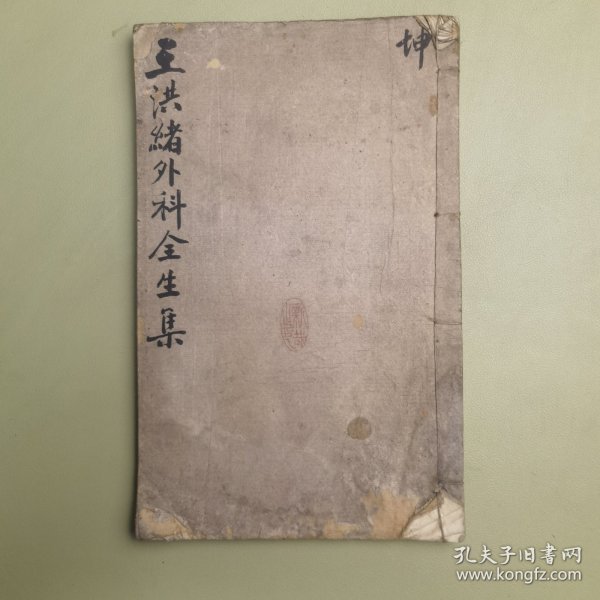 坤
王洪緒外科全生集
孔夫子旧书网
www.kongfz.com